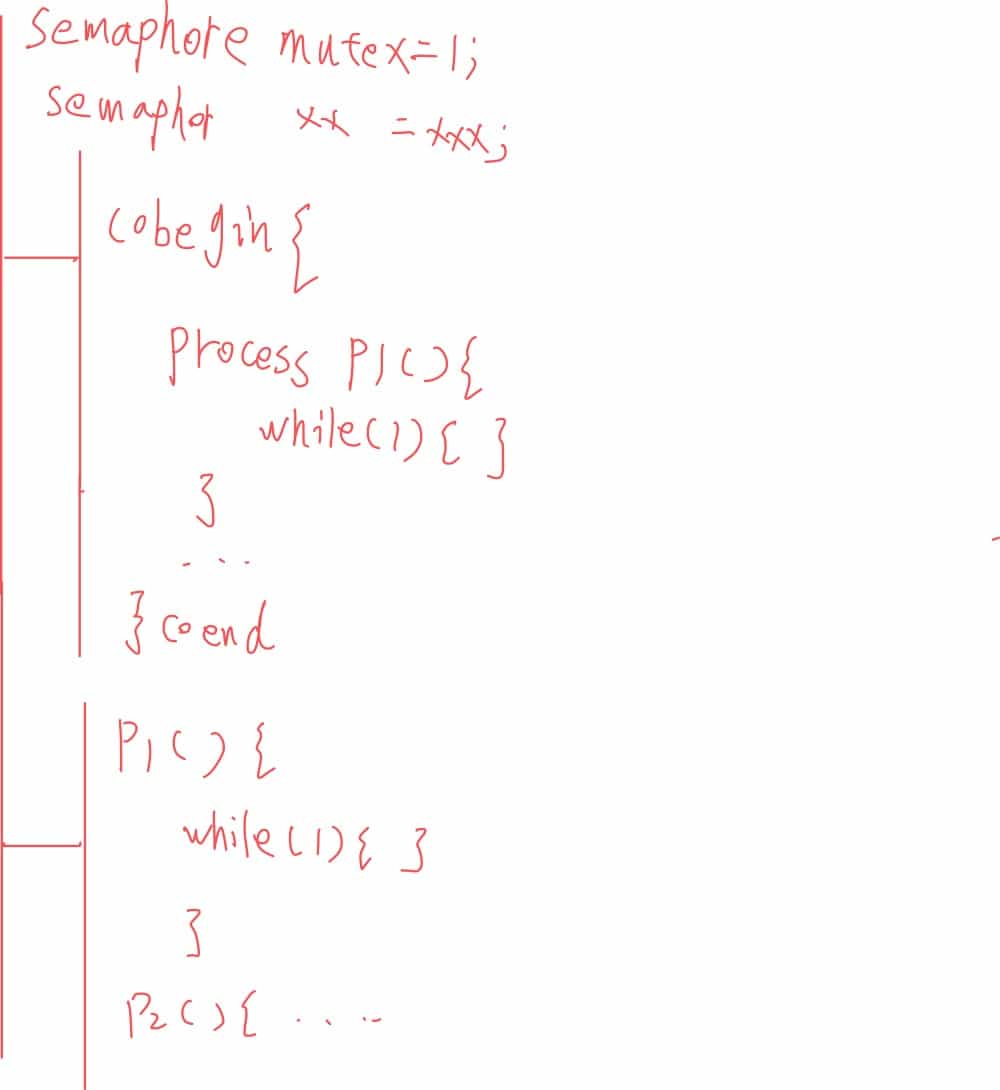 Semaphore mutex=1;
semaphor xx =xxx;
cobegin{
process P1(){
while(1){ }
}
...
} coend
P1(){
while(1){ }
}
P2(){ ....